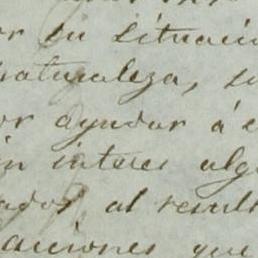 or su situaci
naturaleza, s
or ayudar á e
in interes alg
ados al result
aciones que